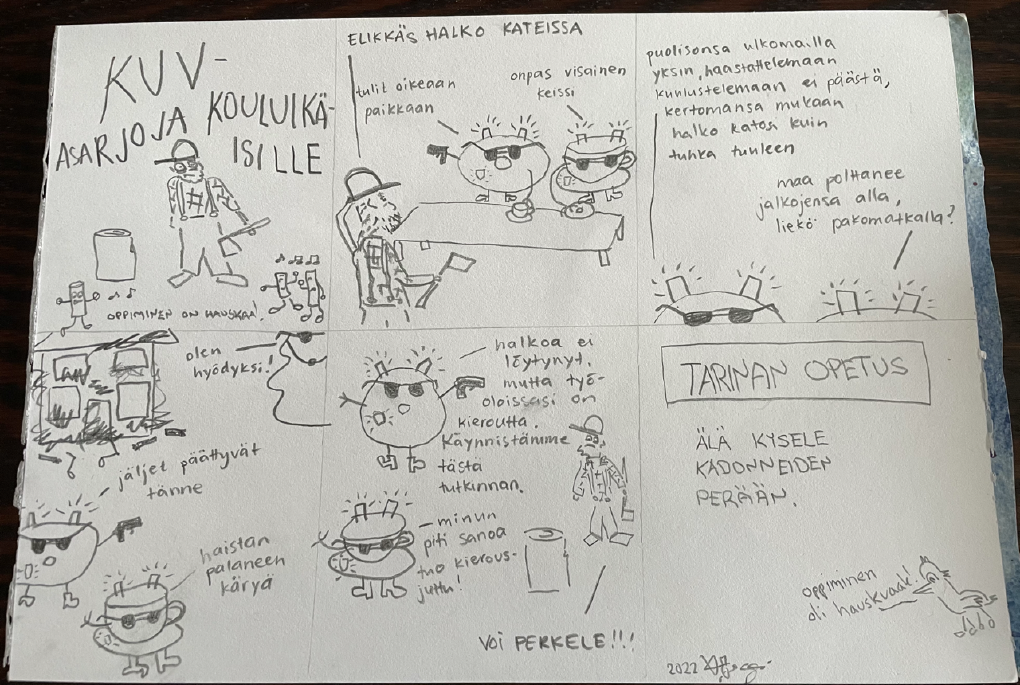 KUV-
ASARJOJA KOULUIKÄ-
ISILLE
OPPIMINEN ON HAUSKAA!
ELIKKÄS HALKO KATEISSA
tulit oikeaan
paikkaan
onpas visainen
keissi
puolisonsa ulkomailla
yksin, haastattelemaan
kuulustelemaan ei päästä,
kertomansa mukaan
halko katosi kuin
tuhka tuuleen
maa polttanee
jalkojensa alla,
liekö pakomatkalla?
olen
hyödyksi!
jäljet päättyvät
tänne
haistan
palaneen
käryä
halkoa ei
löytynyt,
mutta työ-
oloissasi on
kieroutta.
Käynnistämme
tästä
tutkinnan.
minun
piti sanoa
tuo kierous-
juttu!
VOI PERKELE!!!
TARINAN OPETUS
ÄLÄ KYSELE
KADONNEIDEN
PERÄÄN.
oppiminen
oli hauskvaak!
2022